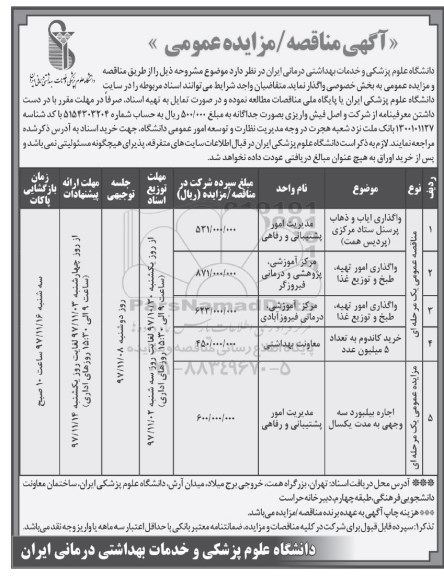 «آگهی مناقصه/مزایده عمومی»
دانشگاه علوم پزشکی و خدمات بهداشتی درمانی ایران در نظر دارد موضوع مشروحه ذیل را از طریق مناقصه
و مزایده عمومی به بخش خصوصی واگذار نماید. متقاضیان واجد شرایط می توانند اسناد مربوطه را در سایت
دانشگاه علوم پزشکی ایران یا پایگاه ملی مناقصات مطالعه نموده و در صورت تمایل به تهیه اسناد، صرفاً در مهلت مقرر با در دست
داشتن معرفینامه از شرکت و اصل فیش واریزی بصورت جداگانه به مبلغ ۵۰۰/۰۰۰ ریال به حساب شماره ۵۱۵۴۳۰۳۲۰۴ با کد شناسه
۱۳۰۰۱۰۱۱۳۷ بانک ملت نزد شعبه هجرت در وجه مدیریت نظارت و توسعه امور عمومی دانشگاه، جهت خرید اسناد به آدرس ذکر شده
مراجعه نمایند. لازم به ذکر است دانشگاه علوم پزشکی ایران در قبال اطلاعات سایت های متفرقه، پذیرای هیچگونه مسئولیتی نمی باشد و
پس از خرید اوراق به هیچ عنوان مبالغ دریافتی عودت داده نخواهد شد.
ردیف نوع موضوع نام واحد مبلغ سپرده شرکت در مناقصه/مزایده (ریال) مهلت توزیع اسناد جلسه توجیهی مهلت ارائه پیشنهادات زمان بازگشایی پاکات
مناقصه عمومی یک مرحله ای
۱ واگذاری ایاب و ذهاب پرسنل ستاد مرکزی (پردیس همت) مدیریت امور پشتیبانی و رفاهی ۵۳۱/۰۰۰/۰۰۰
۲ واگذاری امور تهیه، طبخ و توزیع غذا مرکز آموزشی، پژوهشی و درمانی فیروزگر ۸۷۱/۰۰۰/۰۰۰
۳ واگذاری امور تهیه، طبخ و توزیع غذا مرکز آموزشی، درمانی فیروزآبادی ۶۲۳/۰۰۰/۰۰۰
۴ خرید کاندوم به تعداد ۵ میلیون عدد معاونت بهداشتی ۴۵۰/۰۰۰/۰۰۰
مزایده عمومی یک مرحله ای
۵ اجاره بیلبورد سه وجهی به مدت یکسال مدیریت امور پشتیبانی و رفاهی ۶۰۰/۰۰۰/۰۰۰
از روز یکشنبه ۹۷/۱۰/۳۰ لغایت روز سه شنبه ۹۷/۱۱/۰۲ (ساعت ۹ الی ۱۵:۳۰ روزهای اداری)
روز دوشنبه ۹۷/۱۱/۰۸
از روز چهارشنبه ۹۷/۱۱/۰۳ لغایت روز یکشنبه ۹۷/۱۱/۱۴ (ساعت ۹ الی ۱۵:۳۰ روزهای اداری)
سه شنبه ۹۷/۱۱/۱۶ ساعت ۱۰ صبح
۰۲۱-۸۸۳۴۹۶۷۰-۵
*** آدرس محل دریافت اسناد: تهران، بزرگراه همت، خروجی برج میلاد، میدان آرش، دانشگاه علوم پزشکی ایران، ساختمان معاونت
دانشجویی فرهنگی، طبقه چهارم، دبیرخانه حراست
*** هزینه چاپ آگهی به عهده برنده مناقصه/مزایده می باشد.
تذکر۱: سپرده قابل قبول برای شرکت در کلیه مناقصات و مزایده، ضمانتنامه معتبر بانکی با حداقل اعتبار سه ماهه یا واریز وجه نقد می باشد.
دانشگاه علوم پزشکی و خدمات بهداشتی درمانی ایران